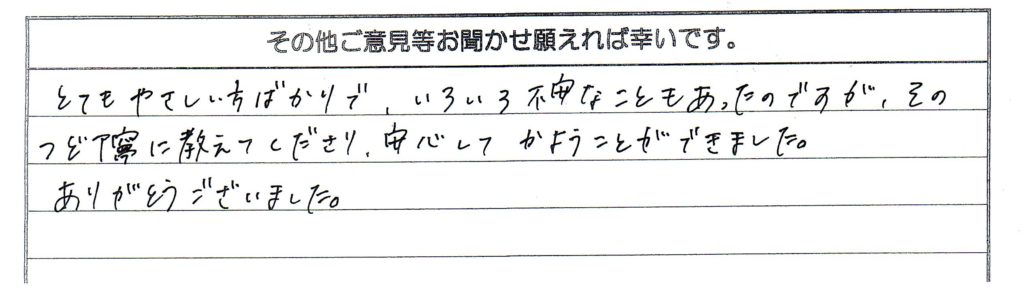 その他ご意見等お聞かせ願えれば幸いです。
とてもやさしい方ばかりで、いろいろ不安なこともあったのですが、その
つど丁寧に教えてくださり、安心してかようことができました。
ありがとうございました。